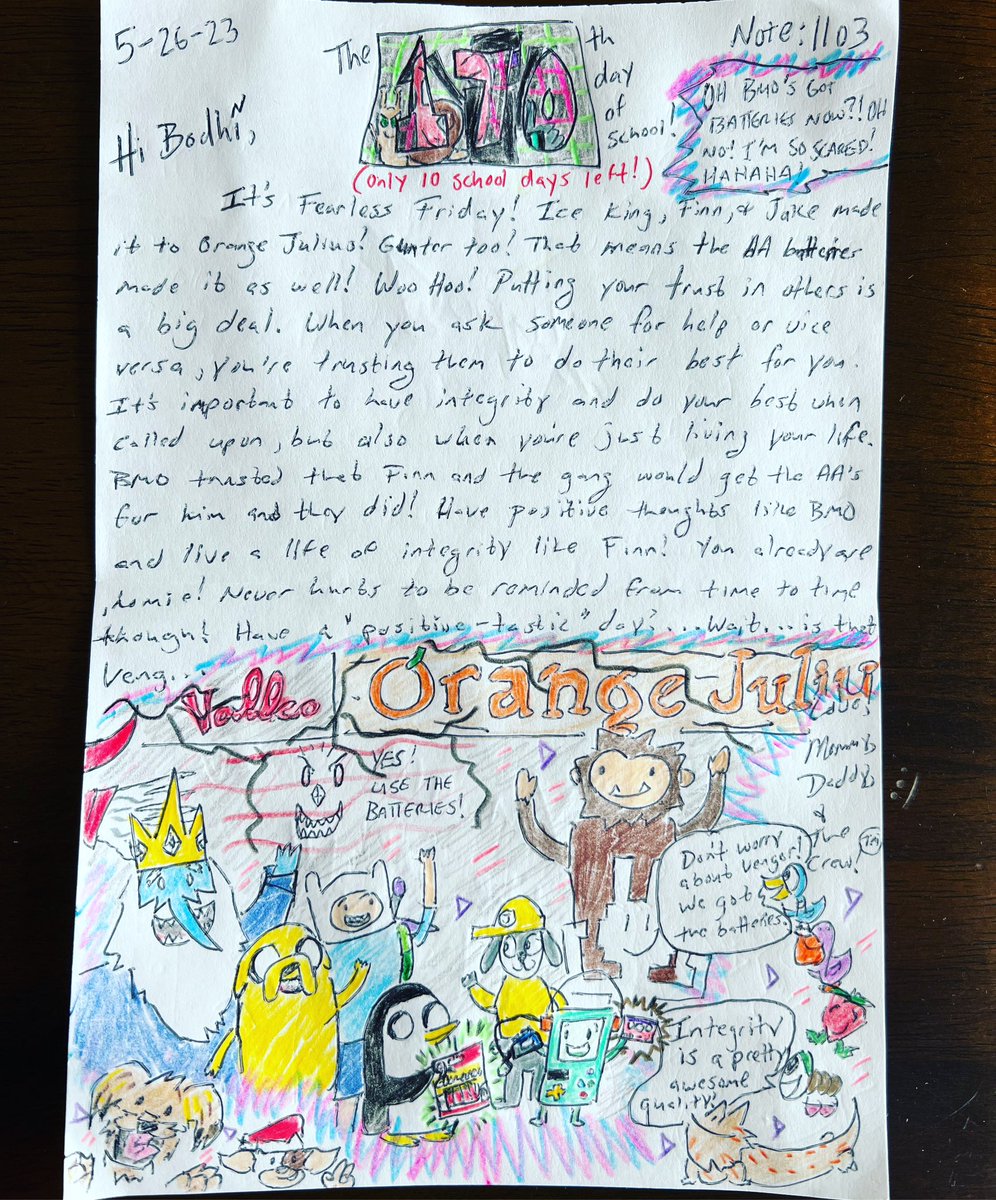 5-26-23
The 170th day of school!
(only 10 school days left!)
Note: 1103
OH BMO'S GOT
BATTERIES NOW?! OH
NO! I'M SO SCARED!
HAHAHA!
Hi Bodhi,
It's Fearless Friday! Ice King, Finn, & Jake made
it to Orange Julius! Gunter too! That means the AA batteries
made it as well! Woo Hoo! Putting your trust in others is
a big deal. When you ask someone for help or vice
versa, you're trusting them to do their best for you.
It's important to have integrity and do your best when
called upon, but also when you're just living your life.
BMO trusted that Finn and the gang would get the AA's
for him and they did! Have positive thoughts like BMO
and live a life of integrity like Finn! You already are
, homie! Never hurts to be reminded from time to time
though! Have a "positive-tastic" day?...Wait...is that
Veng...
Vallco
Orange Juliu
Love!
Mommy
Daddy
&
The
Crew!
TM
YES!
USE THE
BATTERIES!
Don't worry
about Venger!
We got
the batteries.
Integrity
is a pretty
awesome
quality!